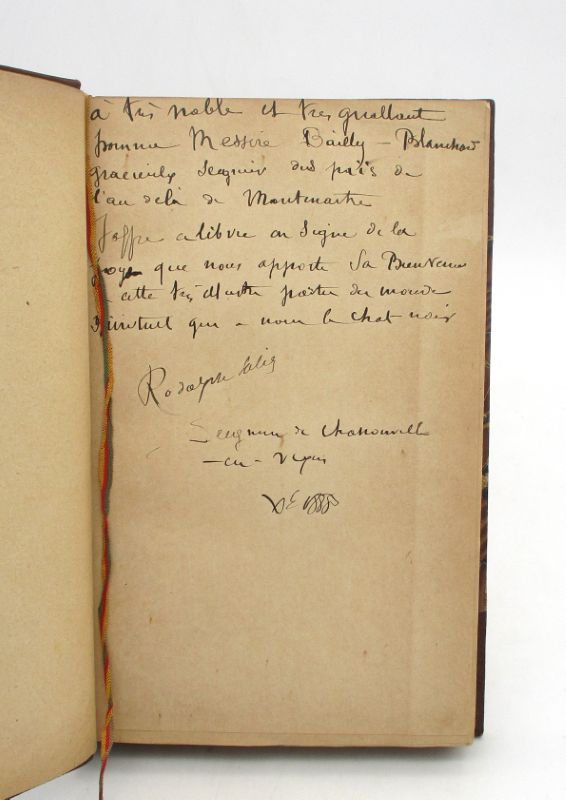 à très noble et tres guallant
homme Messire Bailly-Blanchard
gracieulx Seigneur des païs de
l'au delà de Montmartre
J'offre ce libvre en Signe de la
joye que nous apporte Sa Bienvenue
cette très illustre partie du monde
Spirituel qui a nom le chat noir
Rodolphe Salis
Seigneur de Chatnoirville
-en-Vexin